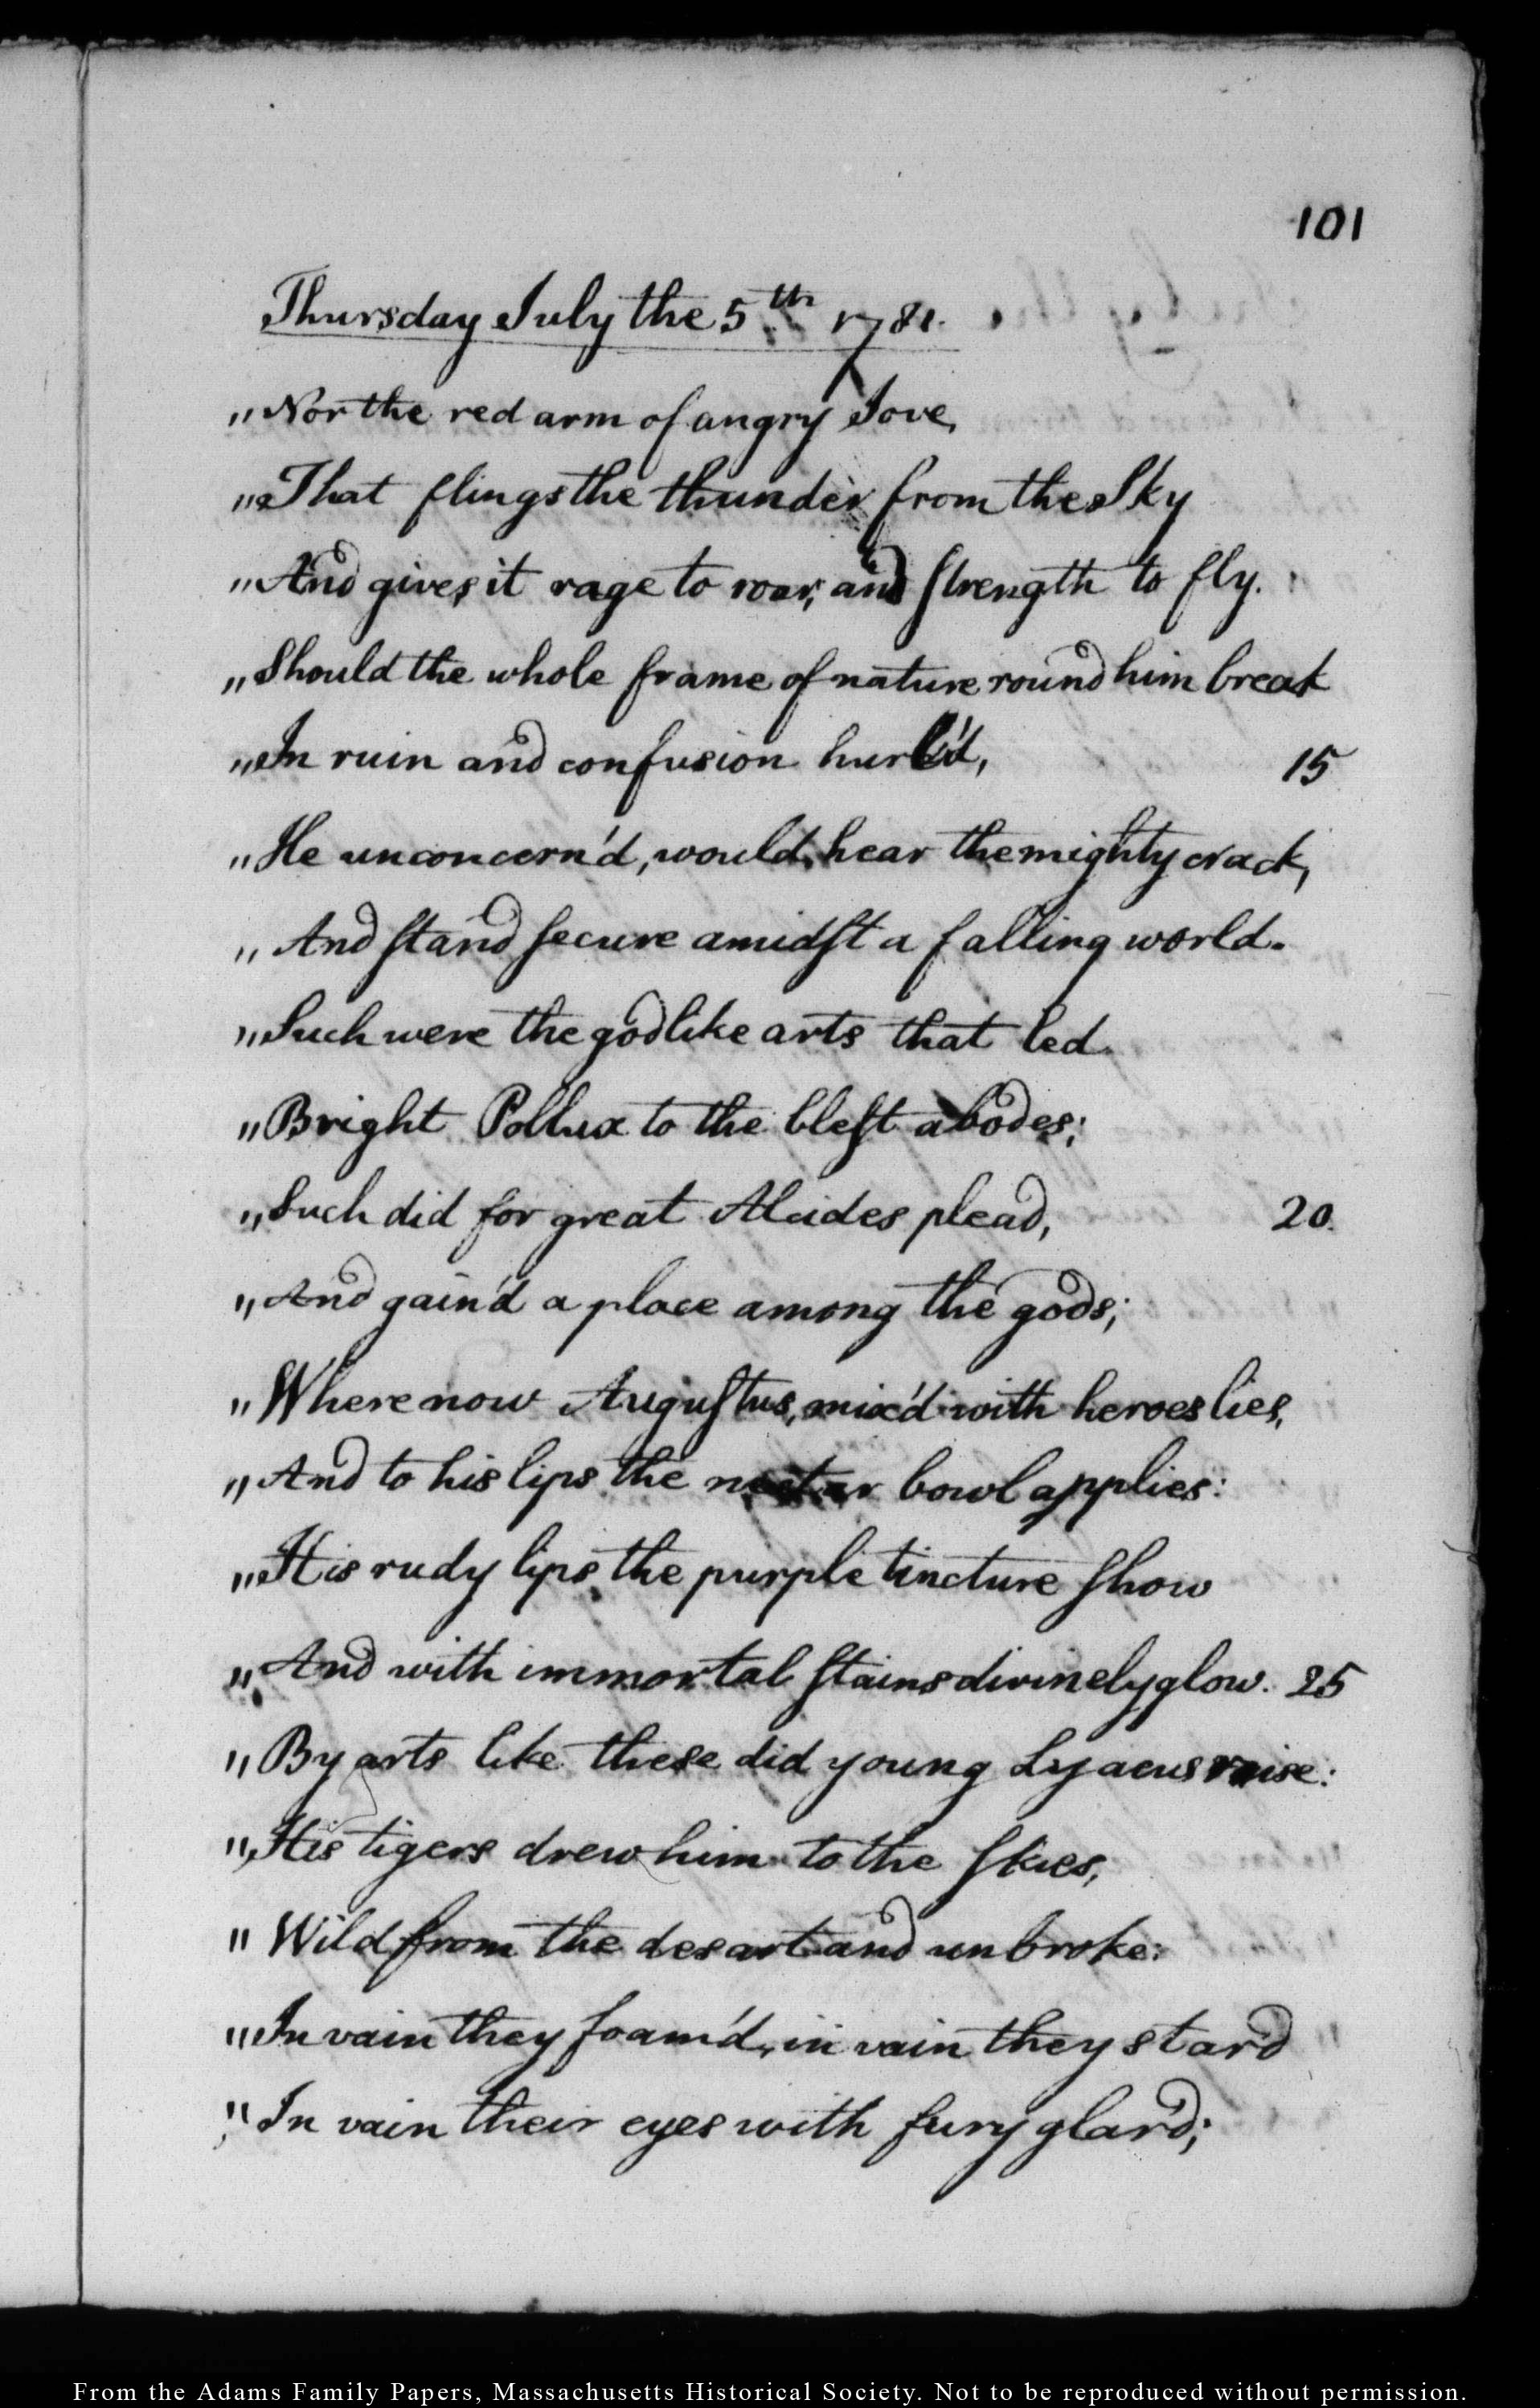 101
Thursday July the 5th 1781.
„Nor the red arm of angry Jove,
„That flings the thunder from the Sky
„And gives it rage to roar, and ſtrength to fly.
„Should the whole frame of nature round him break
„In ruin and confusion hurl'd, 15
„He unconcern'd, would hear the mighty crack,
„And ſtand ſecure amidſt a falling world.
„Such were the godlike arts that led
„Bright Pollux to the bleſt abodes;
„Such did for great Alcides plead, 20.
„And gain'd a place among the gods;
„Where now Auguſtus, mix'd with heroes lies,
„And to his lips the nectar bowl applies:
„His rudy lips the purple tincture ſhow
„And with immortal ſtains divinely glow. 25
„By arts like these did young Lyaeus raise:
„His tigers drew him to the ſkies,
„Wild from the desart and unbroke:
„In vain they foam'd, in vain they star'd
„In vain their eyes with fury glar'd;
From the Adams Family Papers, Massachusetts Historical Society. Not to be reproduced without permission.